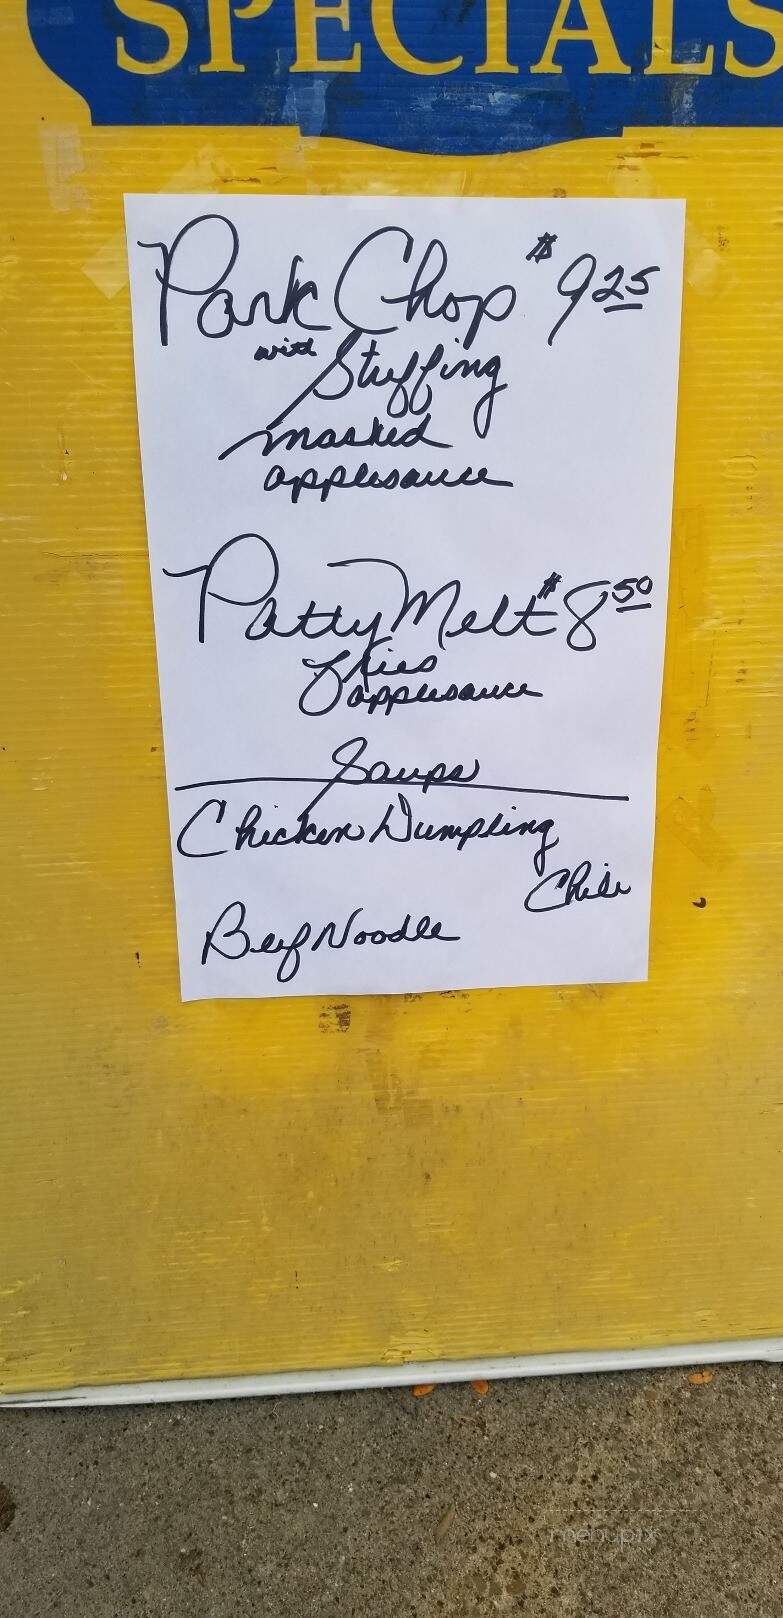 SPECIALS
Pork Chop $9.25
with Stuffing
mashed
applesauce
Patty Melt $8.50
fries
applesauce
Soups
Chicken Dumpling
Chili
Beef Noodle
menupix